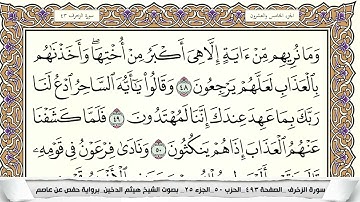 الجزء الخامس والعشرون
سورة الزخرف ٤٣
وَمَا نُرِيهِم مِّنْ ءَايَةٍ إِلَّا هِيَ أَكْبَرُ مِنْ أُخْتِهَا ۖ وَأَخَذْنَٰهُم
بِٱلْعَذَابِ لَعَلَّهُمْ يَرْجِعُونَ ٤٨ وَقَالُوا۟ يَٰٓأَيُّهَ ٱلسَّاحِرُ ٱدْعُ لَنَا
رَبَّكَ بِمَا عَهِدَ عِندَكَ إِنَّنَا لَمُهْتَدُونَ ٤٩ فَلَمَّا كَشَفْنَا
عَنْهُمُ ٱلْعَذَابَ إِذَا هُمْ يَنكُثُونَ ٥٠ وَنَادَىٰ فِرْعَوْنُ فِي قَوْمِهِۦ
سورة الزخرف_ الصفحة ٤٩٣_ الحزب ٥٠_ الجزء ٢٥_ بصوت الشيخ هيثم الدخين_ برواية حفص عن عاصم